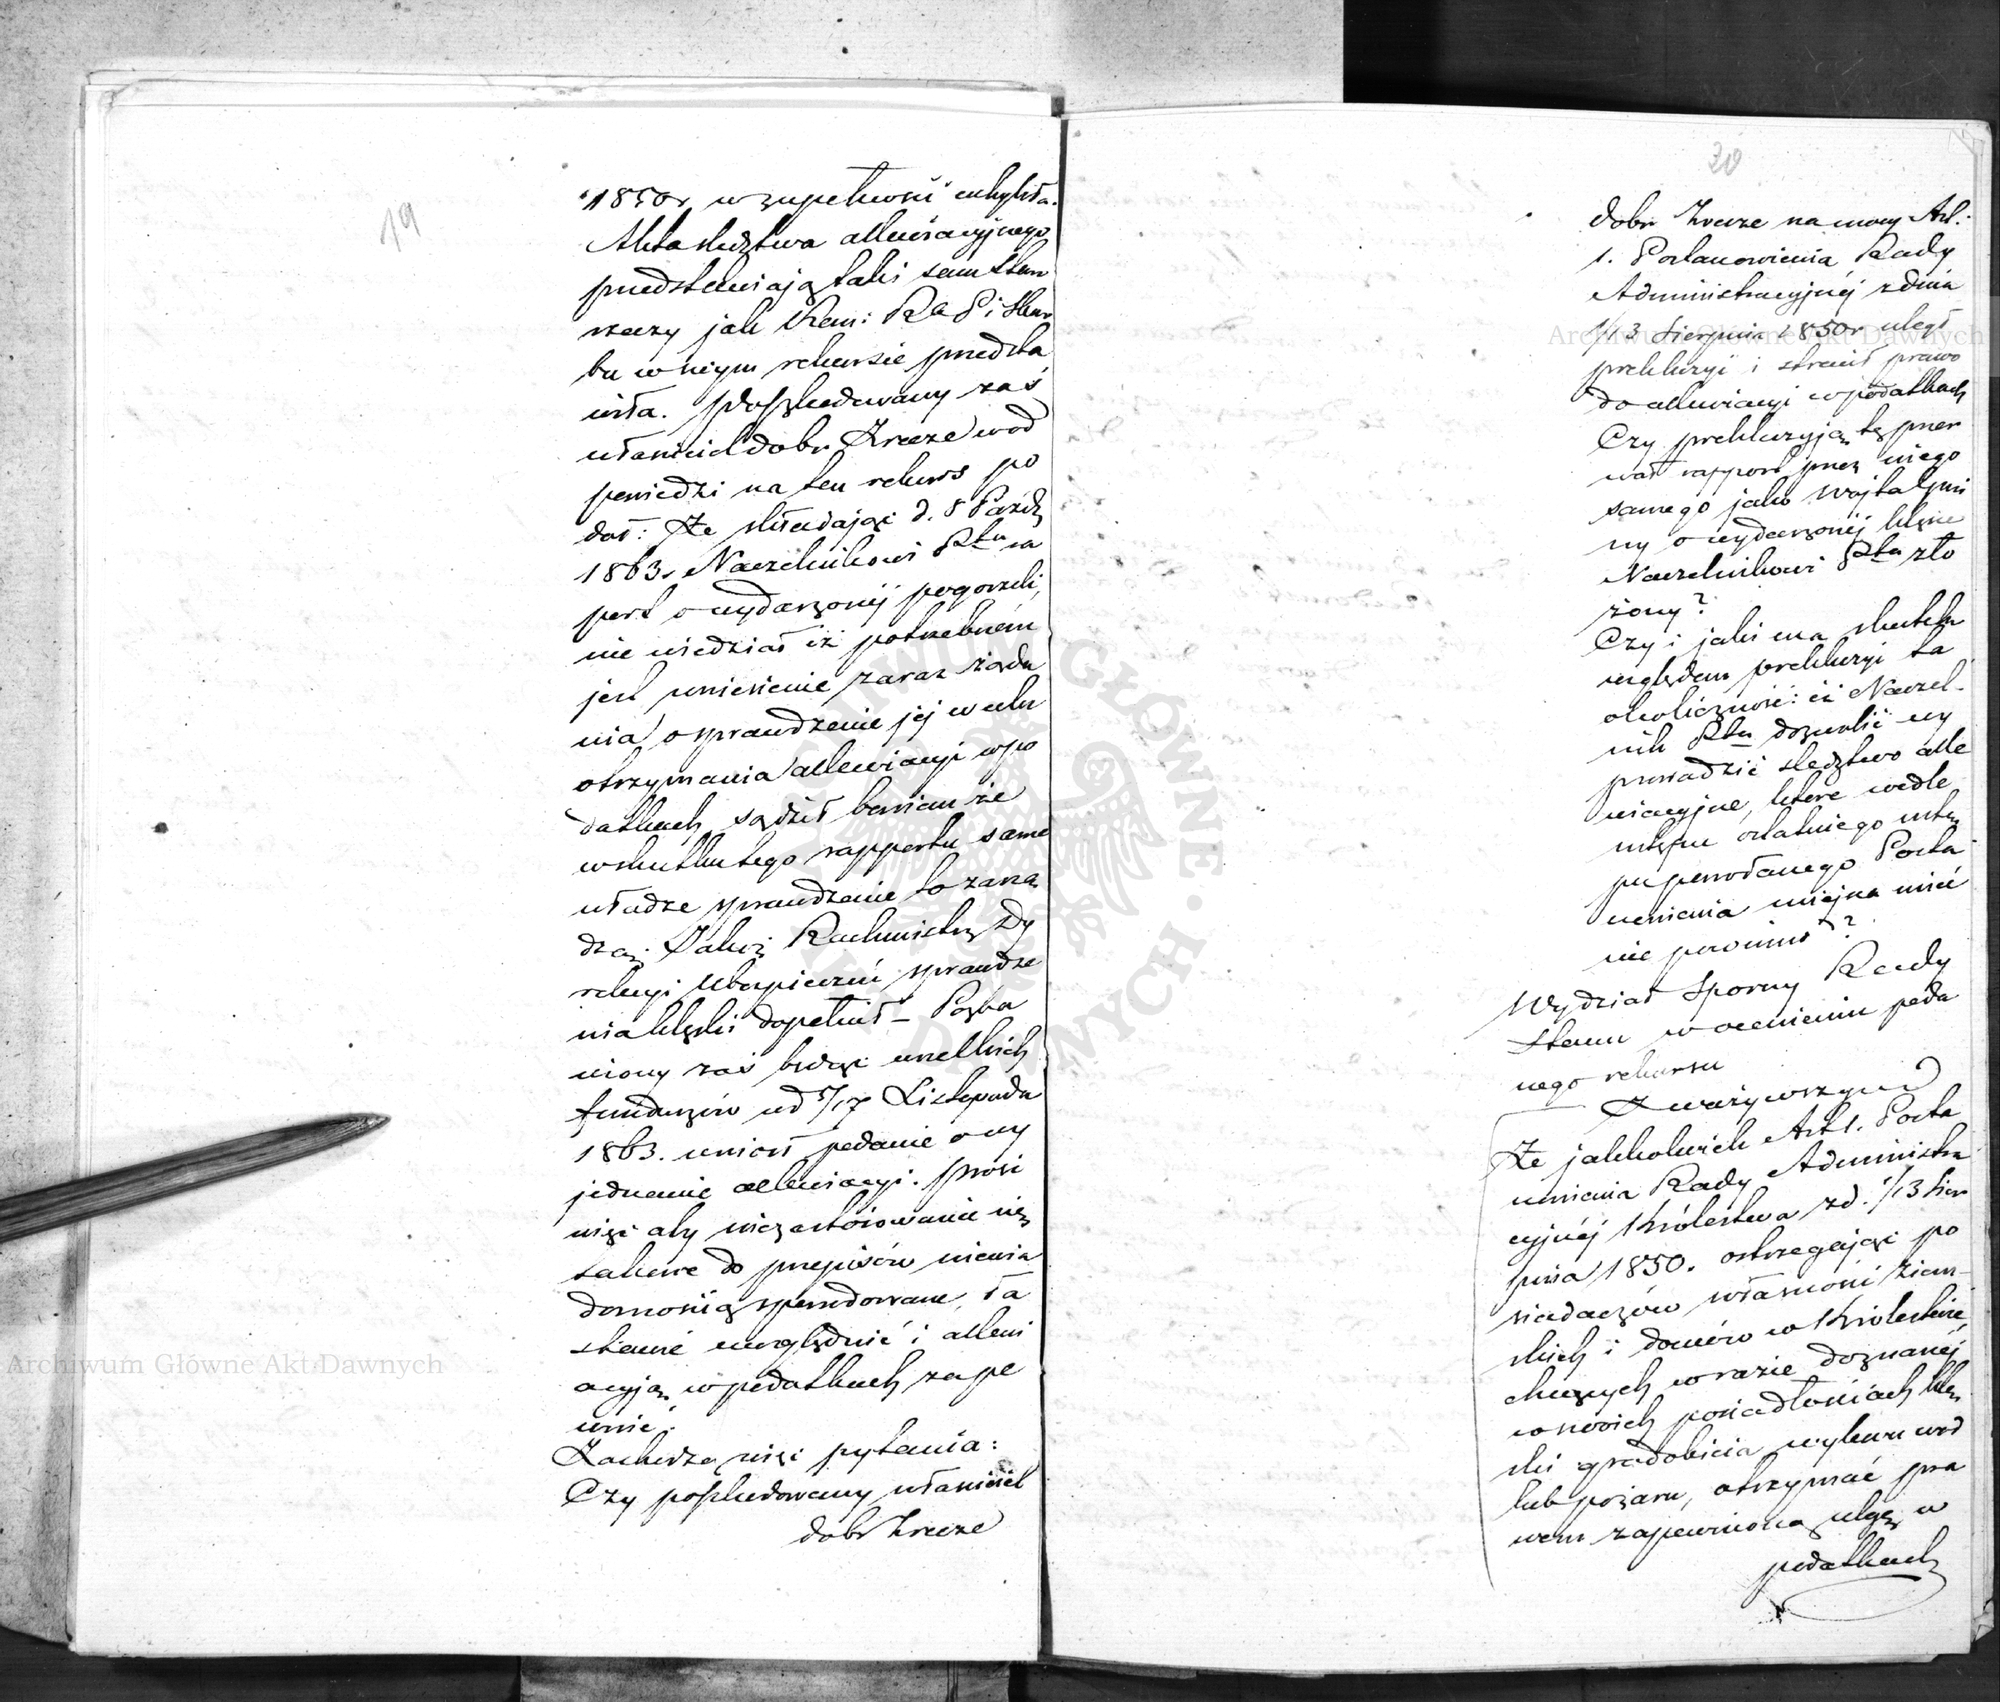 19
1850r w zupełności uchybiła.
Akta śledztwa allewiacyjnego
przedstawiają taki sam stan
rzeczy jak Kom: R P i Skar
bu w niym rekursie przedsta
wiła. Poszkodowany zaś
właściciel dobr Krcze w od
powiedzi na ten rekurs po
dał: Że składając d. 5 Paźdz
1863r Naczelnikowi Ptu ra
port o wydarzonéj pogorzeli,
nie wiedział iż potrzebném
jest wniesienie zaraz żąda
nia o sprawdzenie jéj w celu
otrzymania allewiacyi w po
datkach, sądził bowiem że
w skutku tego rapportu same
władze sprawdzenie to zarzą
dzą. Jakoż Rachmistrz Dy
rekcyi Ubezpieczeń sprawdze
nia klęski dopełnił – Pozba
wiony zaś będąc wszelkich
funduszów od 5/17 Listopada
1863. wniosł podanie o wy
jednanie allewiacyi. Prosi
więc aby niezastosowanie się
takowe do przepisów niewia
domością spowodowane, ła
skawie uwzględnić i allewi
acyją w podatkach zape
wnić.
Zachodzą więc pytania:
Czy poszkodowany właściciel
dobr Krcze
20
dobr Krcze na mocy Art:
1. Postanowienia Rady
Administracyjnéj z dnia
1/13 Sierpnia 1850r uległ
prekluzyi i stracił prawo
do allewiacyi w podatkach
Czy prekluzyją tę prze
wał rapport przez niego
samego jako Wójta Gmi
ny o wydarzonéj klęsce
Naczelnikowi Ptu zło
żony?
Czy i jaki ma skutek
względem prekluzyi ta
okoliczność: iż Naczel-
nik Ptu dozwolił wy
prowadzić śledztwo alle
wiacyjne, które wedle
ustępu ostatniego ustę
pu powołanego Posta
nowienia miejsca mieć
nie powinno?
Wydział Sporny Rady
Stanu w ocenieniu poda
nego rekursu
Zważywszy
Że jakkolwiek Art 1. Posta
nowienia Rady Administra
cyjnéj Królestwa z d. 1/13 Sier
pnia 1850. ostrzegając po
siadaczów własności ziem-
skich i domów w Królestwie,
chcących w razie doznanéj
w swoich posiadłościach klę
ski gradobicia wylewu wod
lub pożaru, otrzymać pra
wem zapewnioną ulgę w
podatkach
Archiwum Główne Akt Dawnych
Archiwum Główne Akt Dawnych